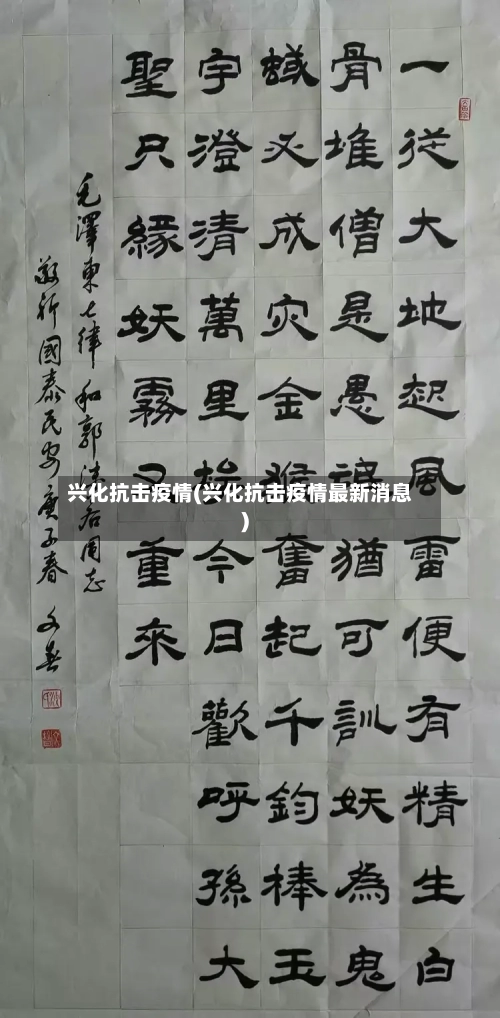 一從大地起風雷便有精生白
骨堆僧是愚氓猶可訓妖為鬼
蜮必成灾金猴奮起千鈞棒玉
宇澄清萬里埃今日歡呼孫大
聖只緣妖霧又重來
毛澤東七律和郭沫若同志
敬祈國泰民安庚子春
兴化抗击疫情(兴化抗击疫情最新消息
)